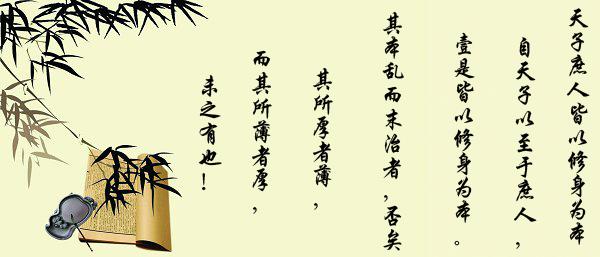 天子庶人皆以修身为本
自天子以至于庶人，
壹是皆以修身为本。
其本乱而末治者，否矣
其所厚者薄，
而其所薄者厚，
未之有也！